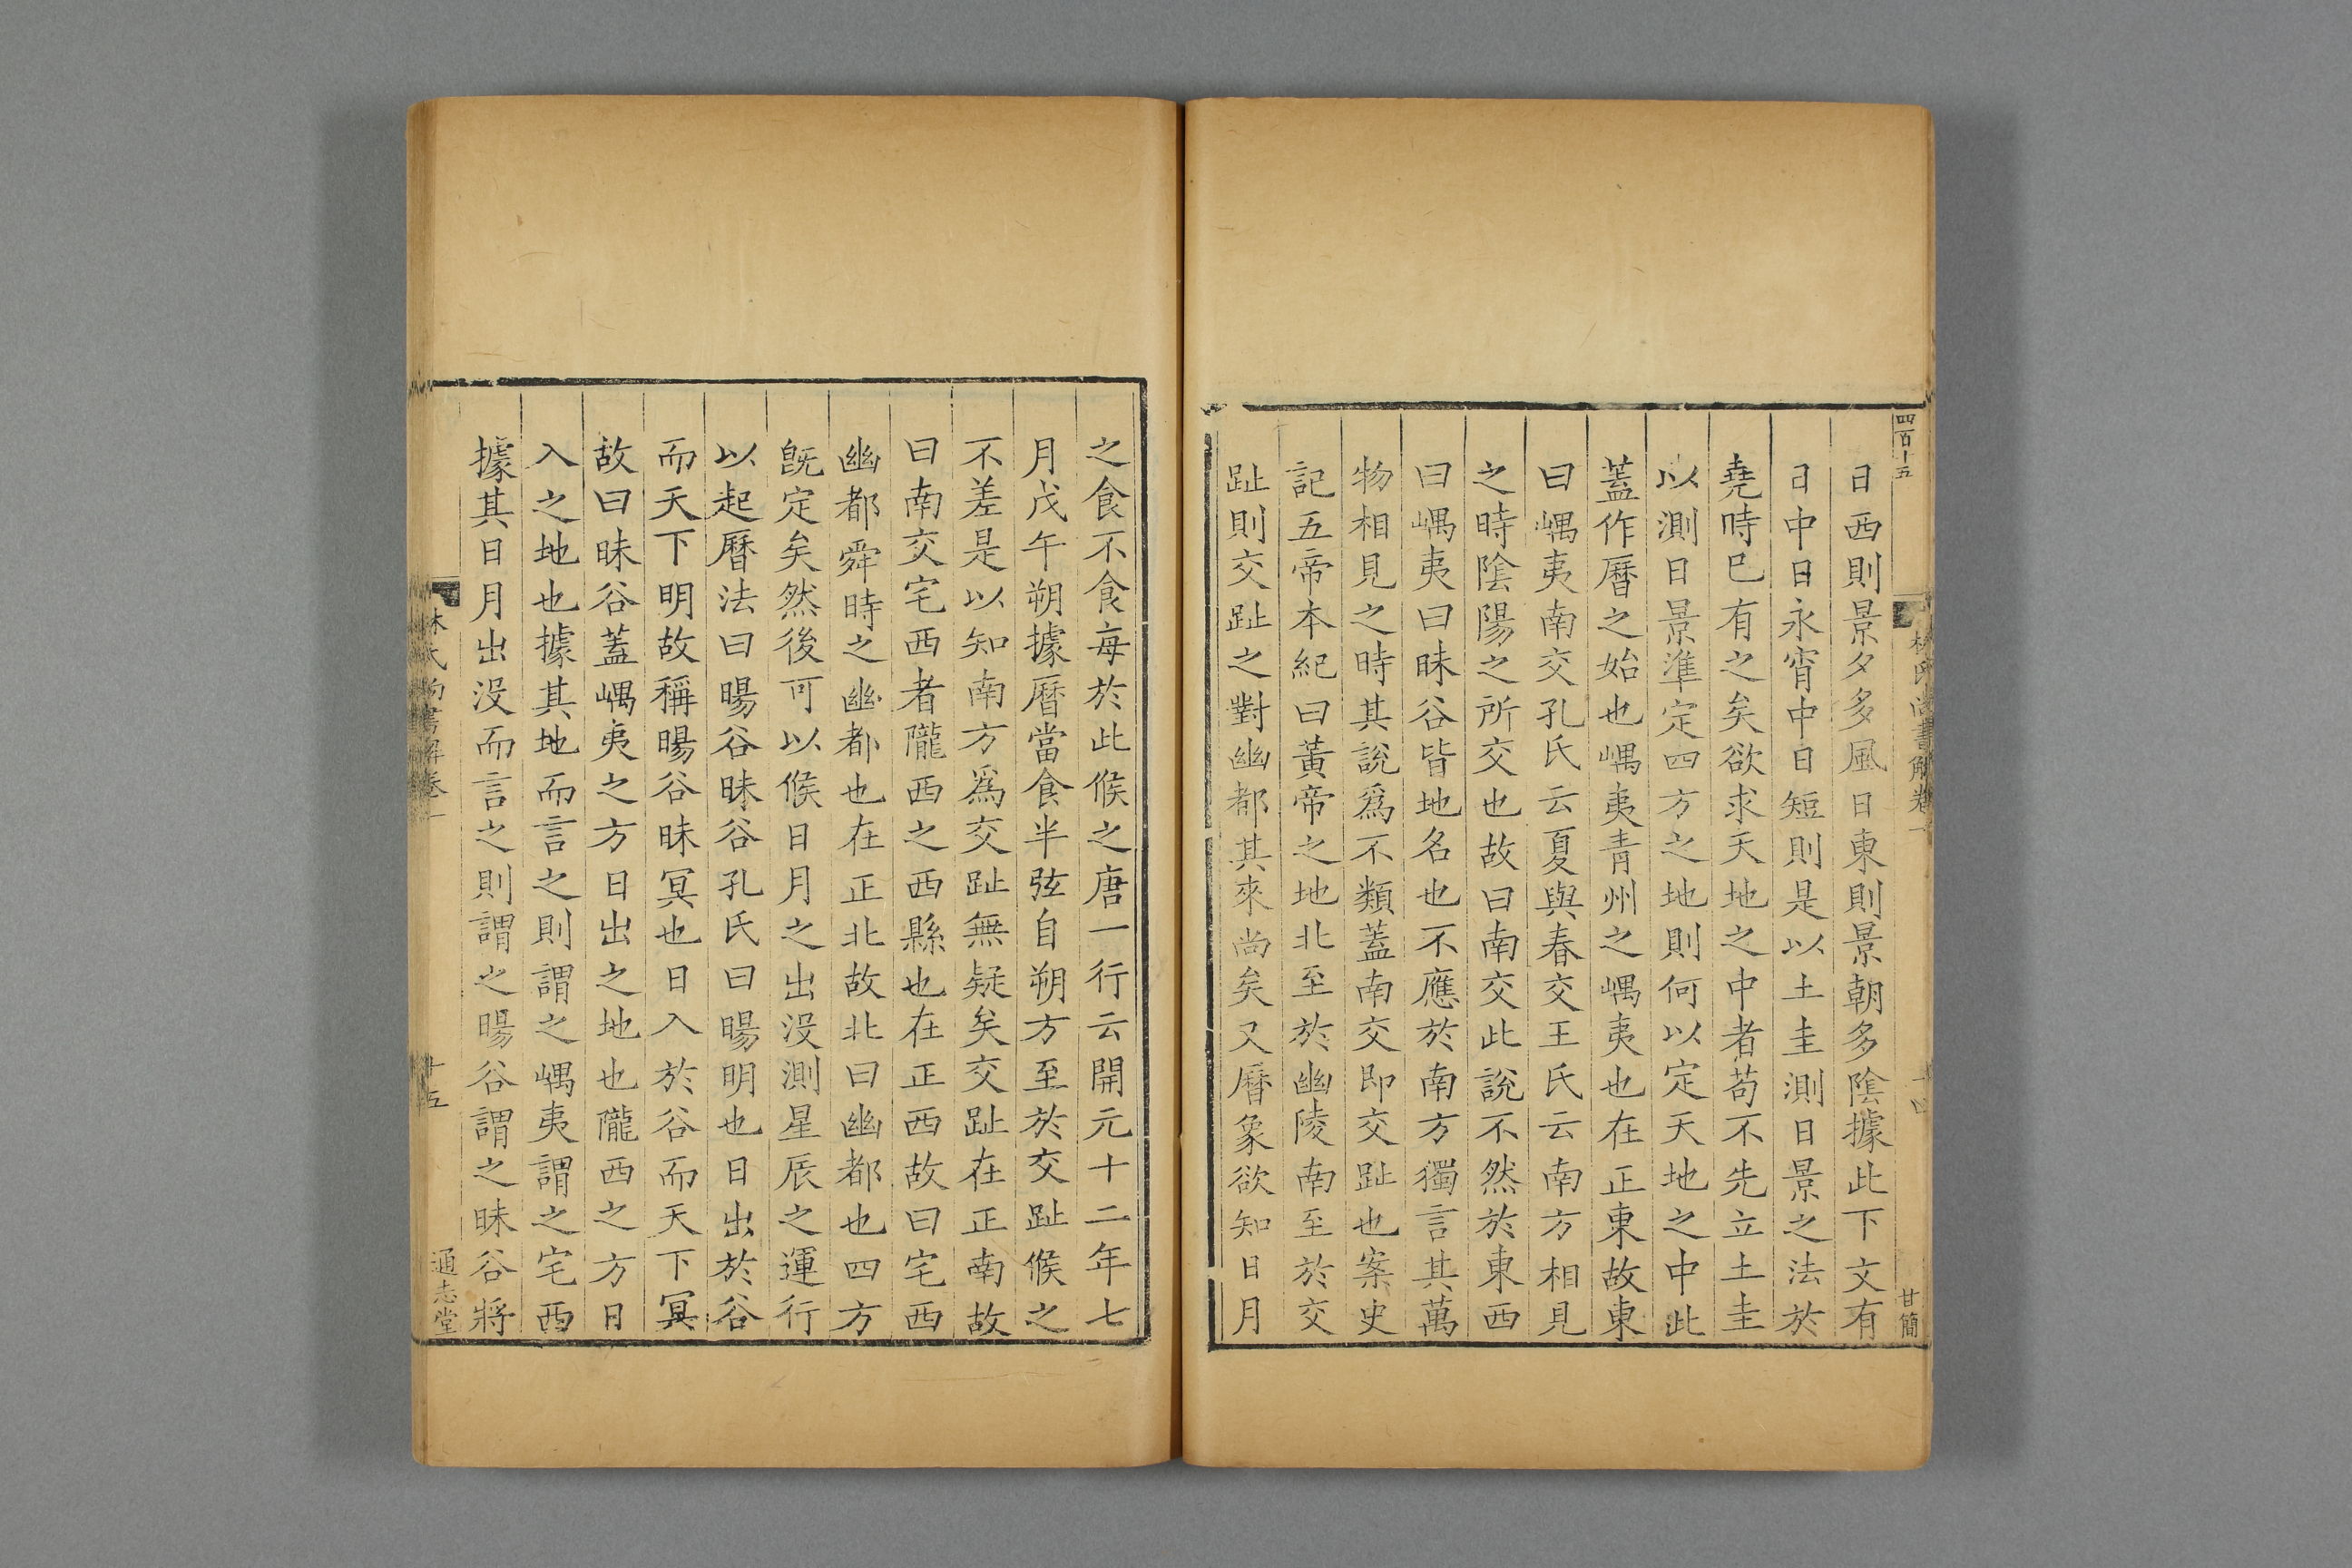 四百十五
林氏尚書解卷一
十四
甘簡
日西則景夕多風日東則景朝多陰據此下文有
日中日永宵中日短則是以土圭測日景之法於
堯時已有之矣欲求天地之中者苟不先立土圭
以測日景準定四方之地則何以定天地之中此
蓋作曆之始也嵎夷青州之嵎夷也在正東故東
曰嵎夷南交孔氏云夏與春交王氏云南方相見
之時陰陽之所交也故曰南交此說不然於東西
曰嵎夷曰昧谷皆地名也不應於南方獨言其萬
物相見之時其說爲不類蓋南交即交趾也案史
記五帝本紀曰黃帝之地北至於幽陵南至於交
趾則交趾之對幽都其來尚矣又曆象欲知日月
之食不食每於此候之唐一行云開元十二年七
月戊午朔據曆當食半弦自朔方至於交趾候之
不差是以知南方爲交趾無疑矣交趾在正南故
曰南交宅西者隴西之西縣也在正西故曰宅西
幽都舜時之幽都也在正北故北曰幽都也四方
旣定矣然後可以候日月之出没測星辰之運行
以起曆法曰暘谷昧谷孔氏曰暘明也日出於谷
而天下明故稱暘谷昧冥也日入於谷而天下冥
故曰昧谷蓋嵎夷之方日出之地也隴西之方日
入之地也據其地而言之則謂之嵎夷謂之宅西
據其日月出没而言之則謂之暘谷謂之昧谷將
林氏尚書解卷一
十五
通志堂